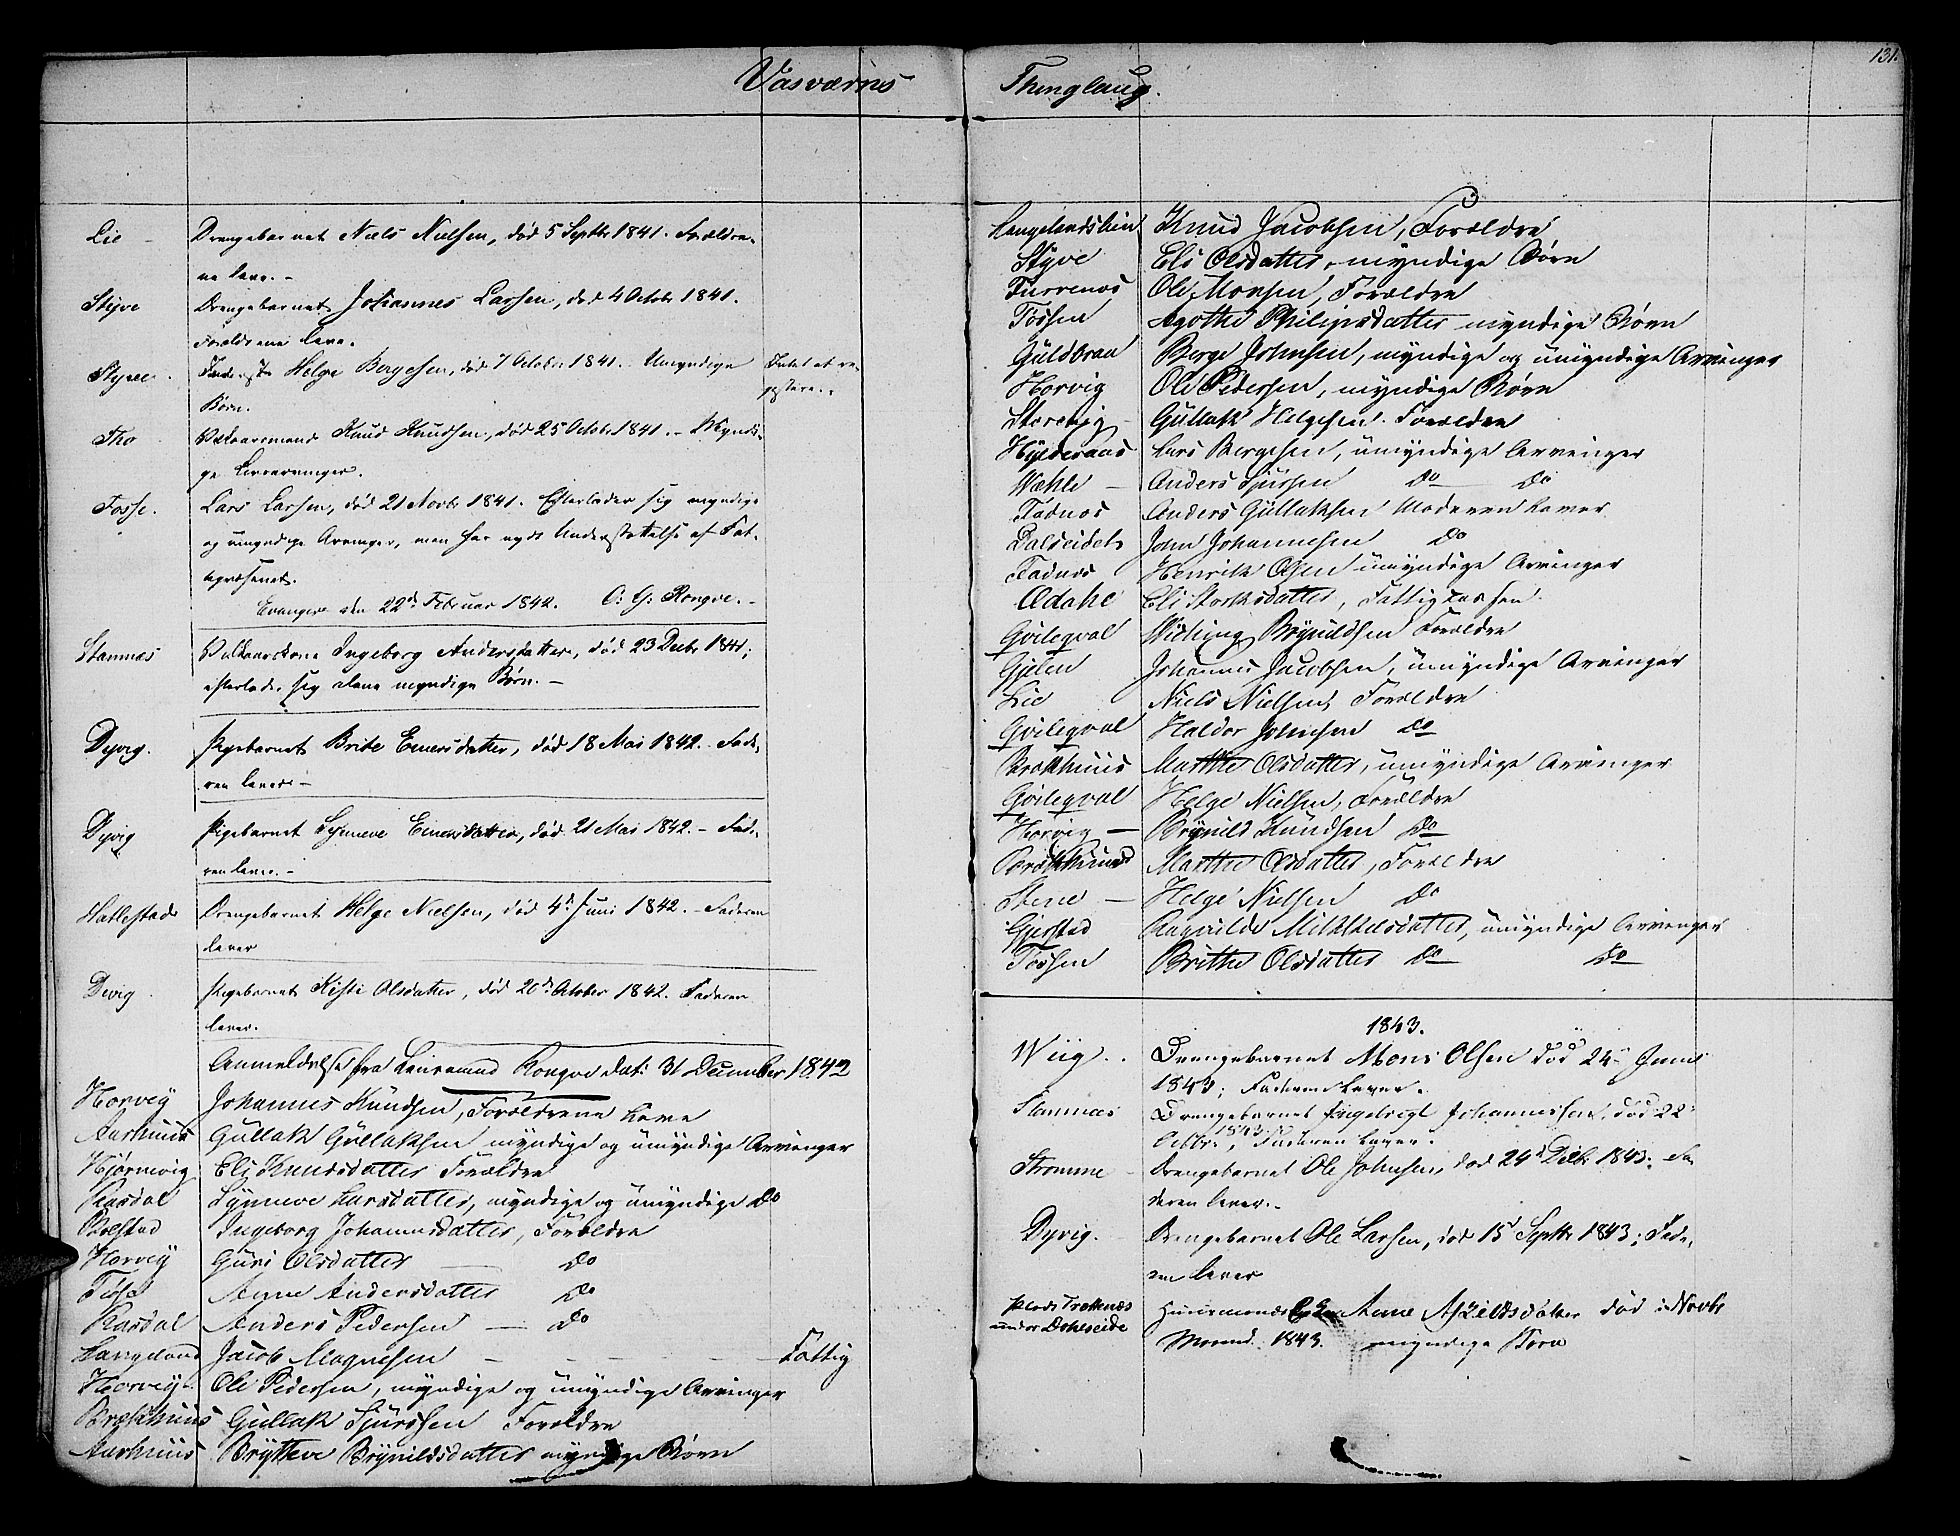 131.
Vasværns Thinglaug.
Lie - Drengebarnet Niels Nielsen, død 5 Septbr 1841. Forældre-
ne leve. -
Styve Drengebarnet Johannes Larsen, død 4 Octobr 1841.
Forældrene leve.
Styve. Helge Bergesen, død 7 Octobr 1841. - Umyndige Intet at re-
Børn. gistere. -
Tho Knud Knudsen, død 25 Octobr 1841. - Myndi-
ge Livsarvinger.
Fosse. Lars Larsen, død 21 Novbr 1841. Efterlader sig myndige
og umyndige Arvinger, men har nydt Understøttelse af Fat-
Evanger den 22de Februar 1842. O. G. Rongve. -
Stamnæs Ingeborg Andersdatter, død 23 Decbr 1841;
efterlader sig alene myndige Børn. -
Dyvig. Pigebarnet Brite Einersdatter, død 18 Mai 1842. - Fade-
ren lever -
Dyvig Pigebarnet Synneve Einersdatter, død 21 Mai 1842. - Fade-
ren lever. -
Hatlestad Drengebarnet Helge Nielsen, død 4de Juni 1842. - Faderen
lever
Devig Pigebarnet Kisti Olsdatter, død 20de October 1842. Faderen
lever.
Anmeldelse fra Lensmand Rongve dat: 31 December 1842
Horvig Johannes Knudsen, Forældrene Leve
Aarhuus Gullak Gullaksen myndige og umyndige Arvinger
Hjørnevig Eli Knudsdatter Forældre
Rasdal Synneve Larsdatter, myndige og umyndige Do
Bolstad Ingeborg Johannesdatter, Forældre
Horvig Guri Olsdatter Do
Fosse Anne Andersdatter Do
Rasdal Anders Pedersen - Do
Langeland Jacob Magnesen - - - - Fattig
Horvig Ole Pedersen, myndige og umyndige Arvinger
Brækhuus Gullak Sjursen Forældre
Aarhuus Brytteve Brynildsdatter myndige Børn
Langelandslien Knud Jacobsen, Forældre
Styve Eli Olsdatter, myndige Børn
Furrenes Ole Monsen, Forældre
Fossen Agothe Philipsdatter myndige Børn
Guldbraa Berge Johnsen, myndige og umyndige Arvinger
Horvig Ole Pedersen, myndige Børn
Storevig Gullak Helgesen. Forældre
Hylderaas Lars Bergesen, umyndige Arvinger
Wæhle - Anders Sjursen Do Do
Fadnes Anders Gullaksen Moderen Lever
Dalseidet John Johannesen Do
Fadnes Henrik Olsen umyndige Arvinger
Ædahl Eli Storksdatter, Fattig
Gøileqval Brynildsen Forældre
Gjelen Johannes Jacobsen, umyndige Arvinger
Lie Niels Nielsen, Forældre
Gøileqval Haldor Johnsen Do
Brækhuus Marthe Olsdatter, umyndige Arvinger
Gøileqval Helge Nielsen, Forældre
Horvig - Brynild Knudsen Do
Brækhuus Marthe Olsdatter, Forældre
Stene - Helge Nielsen Do
Gjerstad Ragnilde Mikkelsdatter, umyndige Arvinger
Fossen Brithe Olsdatter Do Do
1843.
Wiig. . Drengebarnet Mons Olsen død 24de Juni
1843; Faderen Lever.
Stamnæs Drengebarnet Ingebrigt Johannessen, død 22
Octbr. 1843, Faderen Lever.
Stramme Drengebarnet Ole Johnsen, død 24de Decbr 1843; Fa-
deren lever. -
Dyvig. Drengebarnet Ole Larsen, død 15de Septbr 1843; Fade-
ren lever
Plads Trettenæs Huusmands Anne Askildsdatter død i Novbr
under Dahlseide Maaned 1843. myndige Børn